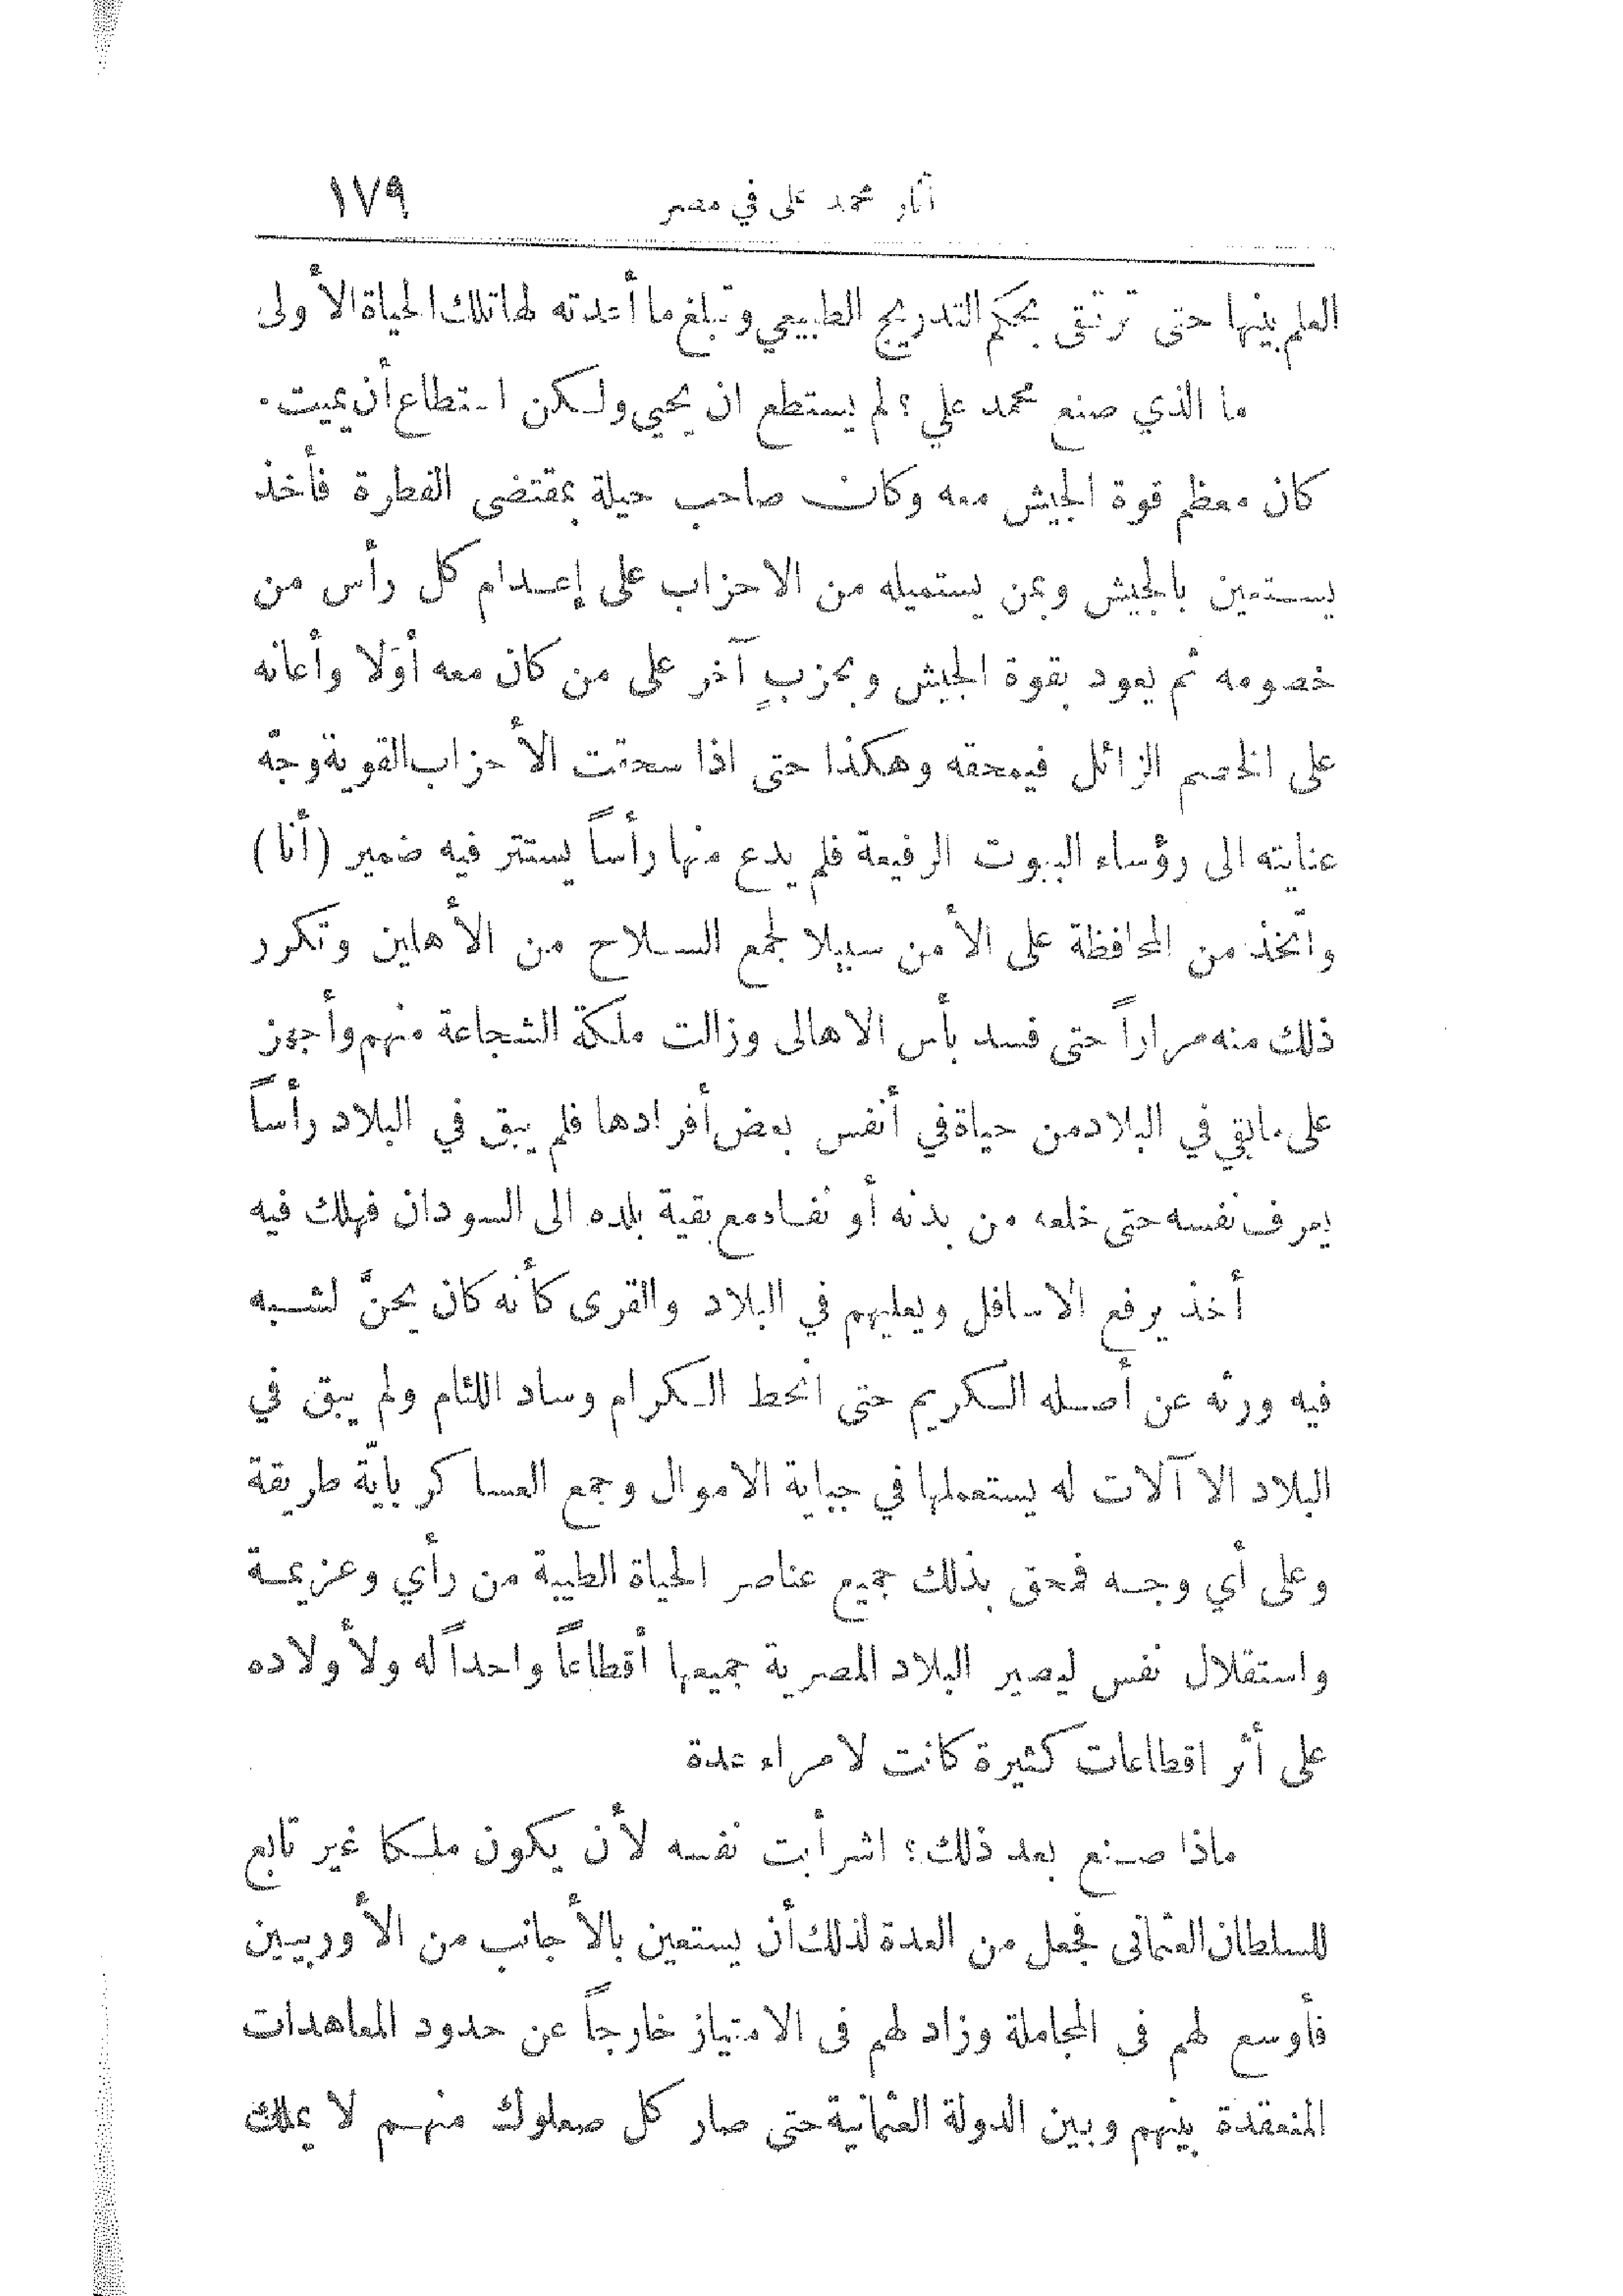 آثار محمد على في مصر ١٧٩
العلم بينها حتى ترتقى بحكم التدريج الطبيعي وتبلغ ما أعدته لها تلك الحياة الأولى
ما الذي صنع محمد علي ؟ لم يستطع ان يحيي ولكن استطاع أن يميت .
كان معظم قوة الجيش معه وكان صاحب حيلة بمقتضى الفطرة فأخذ
يستعين بالجيش وبمن يستميله من الاحزاب على إعدام كل رأس من
خصومه ثم يعود بقوة الجيش وبحزبٍ آخر على من كان معه أوّلا وأعانه
على الخصم الزائل فيمحقه وهكذا حتى اذا سحقت الأحزاب القوية وجّه
عنايته الى رؤساء البيوت الرفيعة فلم يدع منها رأساً يستتر فيه ضمير (أنا)
واتّخذ من المحافظة على الأمن سبيلا لجمع السلاح من الأهلين وتكرر
ذلك منه مراراً حتى فسد بأس الاهالى وزالت ملكة الشجاعة منهم وأجهز
على ما بقي في البلاد من حياة في أنفس بعض أفرادها فلم يبق في البلاد رأساً
يعرف نفسه حتى خلعه من بدنه أو نفاه مع بقية بلده الى السودان فهلك فيه
أخذ يرفع الاسافل ويعليهم في البلاد والقرى كأنه كان يحنّ لشبه
فيه ورثه عن أصله الكريم حتى انحط الكرام وساد اللئام ولم يبق في
البلاد الا آلات له يستعملها في جباية الاموال وجمع العساكر بأيّة طريقة
وعلى أي وجه فمحق بذلك جميع عناصر الحياة الطيبة من رأي وعزيمة
واستقلال نفس ليصير البلاد المصرية جميعها أقطاعاً واحداً له ولأولاده
على أثر اقطاعات كثيرة كانت لامراء عدة
ماذا صنع بعد ذلك ؟ اشرأبت نفسه لأن يكون ملكا غير تابع
للسلطان العثمانى فجعل من العدة لذلك أن يستعين بالأجانب من الأوربيين
فأوسع لهم فى المجاملة وزاد لهم فى الامتياز خارجاً عن حدود المعاهدات
المنعقدة بينهم وبين الدولة العثمانية حتى صار كل صعلوك منهم لا يملك